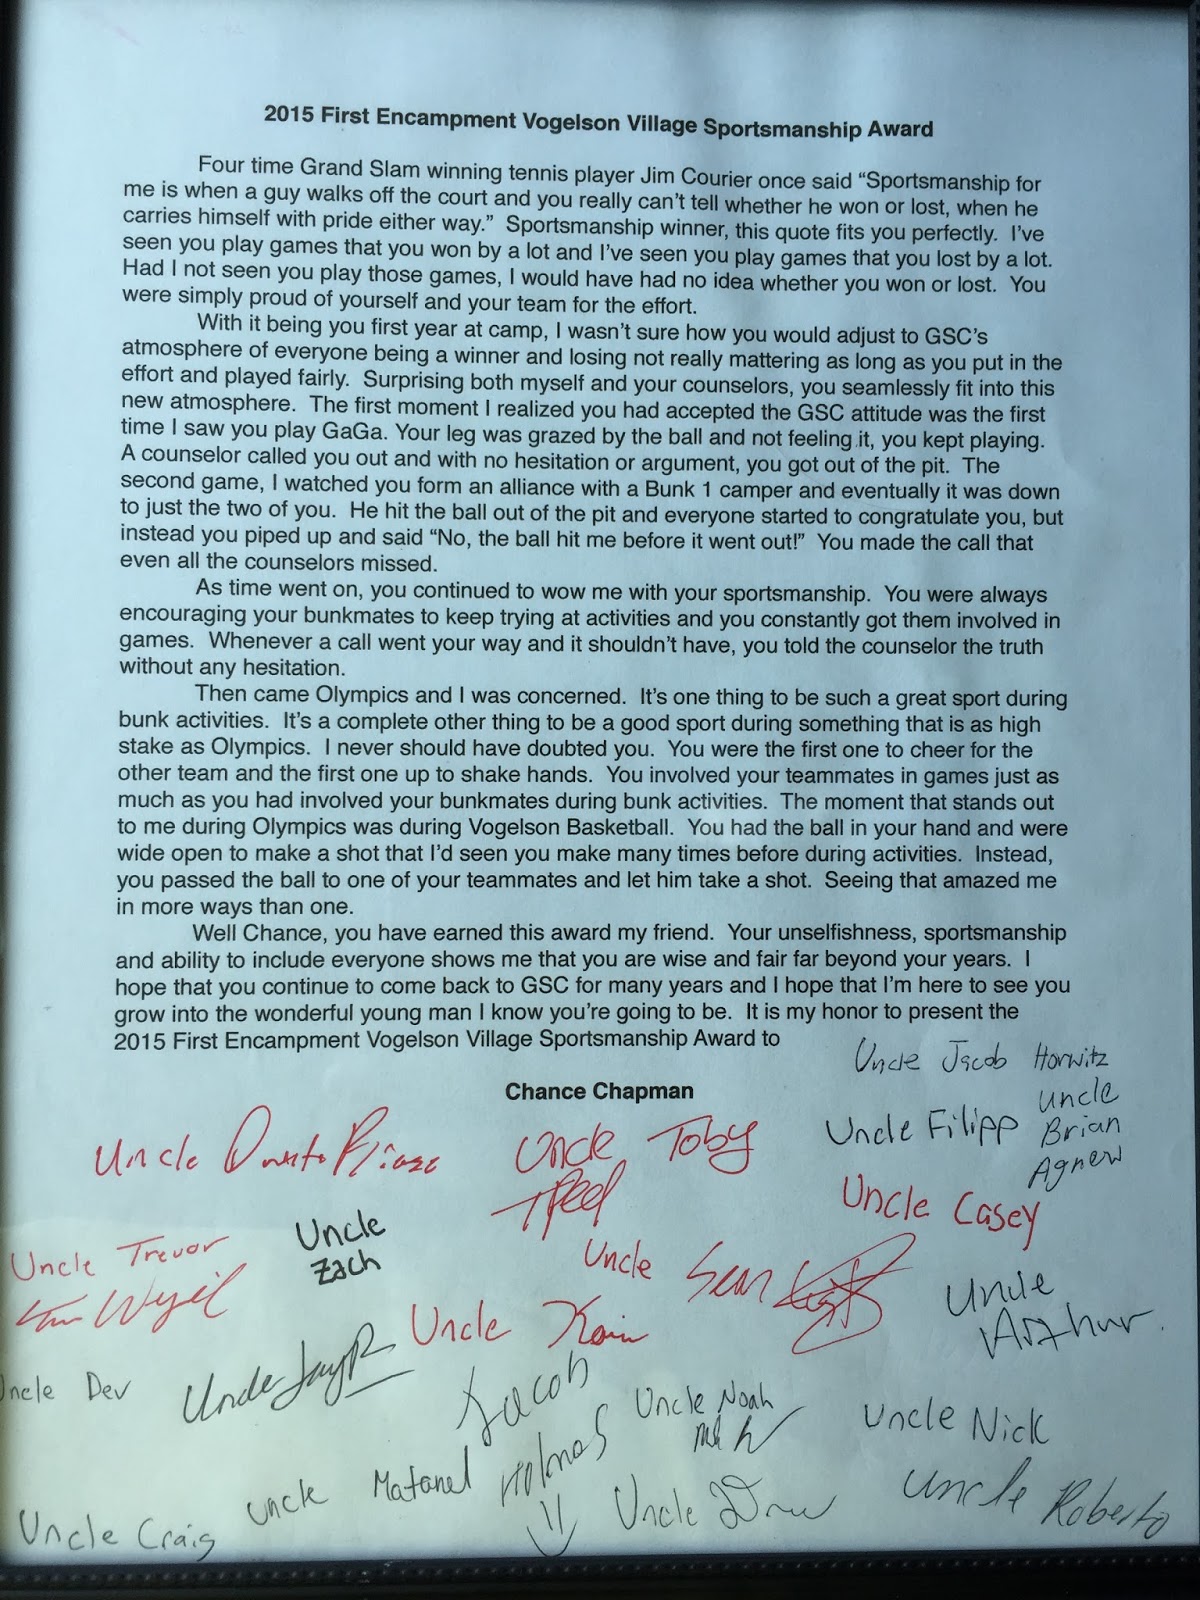 2015 First Encampment Vogelson Village Sportsmanship Award
Four time Grand Slam winning tennis player Jim Courier once said “Sportsmanship for
me is when a guy walks off the court and you really can’t tell whether he won or lost, when he
carries himself with pride either way.” Sportsmanship winner, this quote fits you perfectly. I’ve
seen you play games that you won by a lot and I’ve seen you play games that you lost by a lot.
Had I not seen you play those games, I would have had no idea whether you won or lost. You
were simply proud of yourself and your team for the effort.
With it being you first year at camp, I wasn’t sure how you would adjust to GSC’s
atmosphere of everyone being a winner and losing not really mattering as long as you put in the
effort and played fairly. Surprising both myself and your counselors, you seamlessly fit into this
new atmosphere. The first moment I realized you had accepted the GSC attitude was the first
time I saw you play GaGa. Your leg was grazed by the ball and not feeling it, you kept playing.
A counselor called you out and with no hesitation or argument, you got out of the pit. The
second game, I watched you form an alliance with a Bunk 1 camper and eventually it was down
to just the two of you. He hit the ball out of the pit and everyone started to congratulate you, but
instead you piped up and said “No, the ball hit me before it went out!” You made the call that
even all the counselors missed.
As time went on, you continued to wow me with your sportsmanship. You were always
encouraging your bunkmates to keep trying at activities and you constantly got them involved in
games. Whenever a call went your way and it shouldn’t have, you told the counselor the truth
without any hesitation.
Then came Olympics and I was concerned. It’s one thing to be such a great sport during
bunk activities. It’s a complete other thing to be a good sport during something that is as high
stake as Olympics. I never should have doubted you. You were the first one to cheer for the
other team and the first one up to shake hands. You involved your teammates in games just as
much as you had involved your bunkmates during bunk activities. The moment that stands out
to me during Olympics was during Vogelson Basketball. You had the ball in your hand and were
wide open to make a shot that I’d seen you make many times before during activities. Instead,
you passed the ball to one of your teammates and let him take a shot. Seeing that amazed me
in more ways than one.
Well Chance, you have earned this award my friend. Your unselfishness, sportsmanship
and ability to include everyone shows me that you are wise and fair far beyond your years. I
hope that you continue to come back to GSC for many years and I hope that I’m here to see you
grow into the wonderful young man I know you’re going to be. It is my honor to present the
2015 First Encampment Vogelson Village Sportsmanship Award to
Uncle Jacob Horwitz
Chance Chapman
Uncle
Uncle Toby
Uncle Filipp
Uncle
Brian
Agnew
Uncle Casey
Uncle Trevor
Uncle
Zach
Uncle Sean
Uncle
Uncle
Arthur
Uncle Dev
Uncle
Jacob
Holmes
Uncle Noah
Uncle Nick
Uncle Craig
Uncle Matanel
Uncle Drew
Uncle Roberto